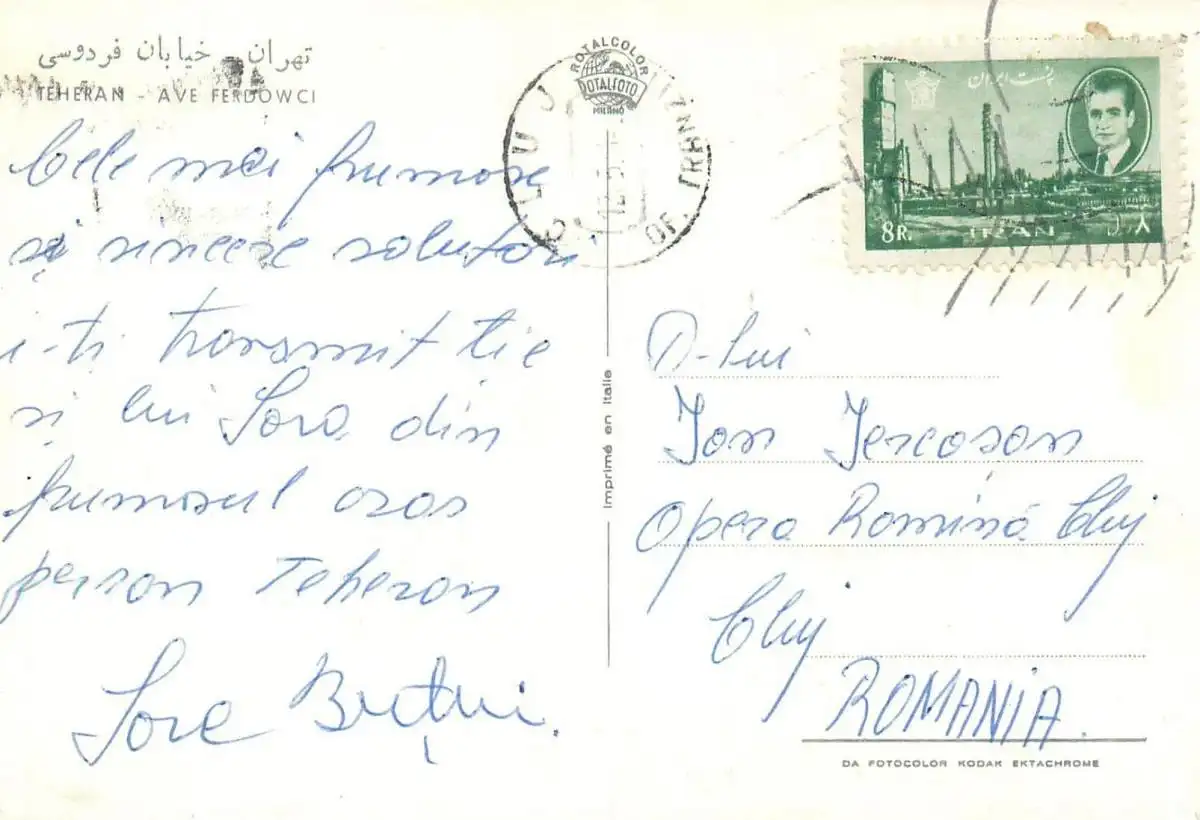 تهران - خیابان فردوسی
TEHERAN - AVE FERDOWCI
Cele mai frumose
și sincere salutări
i-ți transmit ție
și lui Sora din
frumosul oras
persan Teheran
ROTALCOLOR
ROTALFOTO
MILANO
CLUJ
TRANZIT
OF. 10
Imprimé en Italie
پست ایران
8 R.
IRAN
۸ ر.
D-lui
Ion
Opera Romînă Cluj
Cluj
ROMANIA.
DA FOTOCOLOR KODAK EKTACHROME